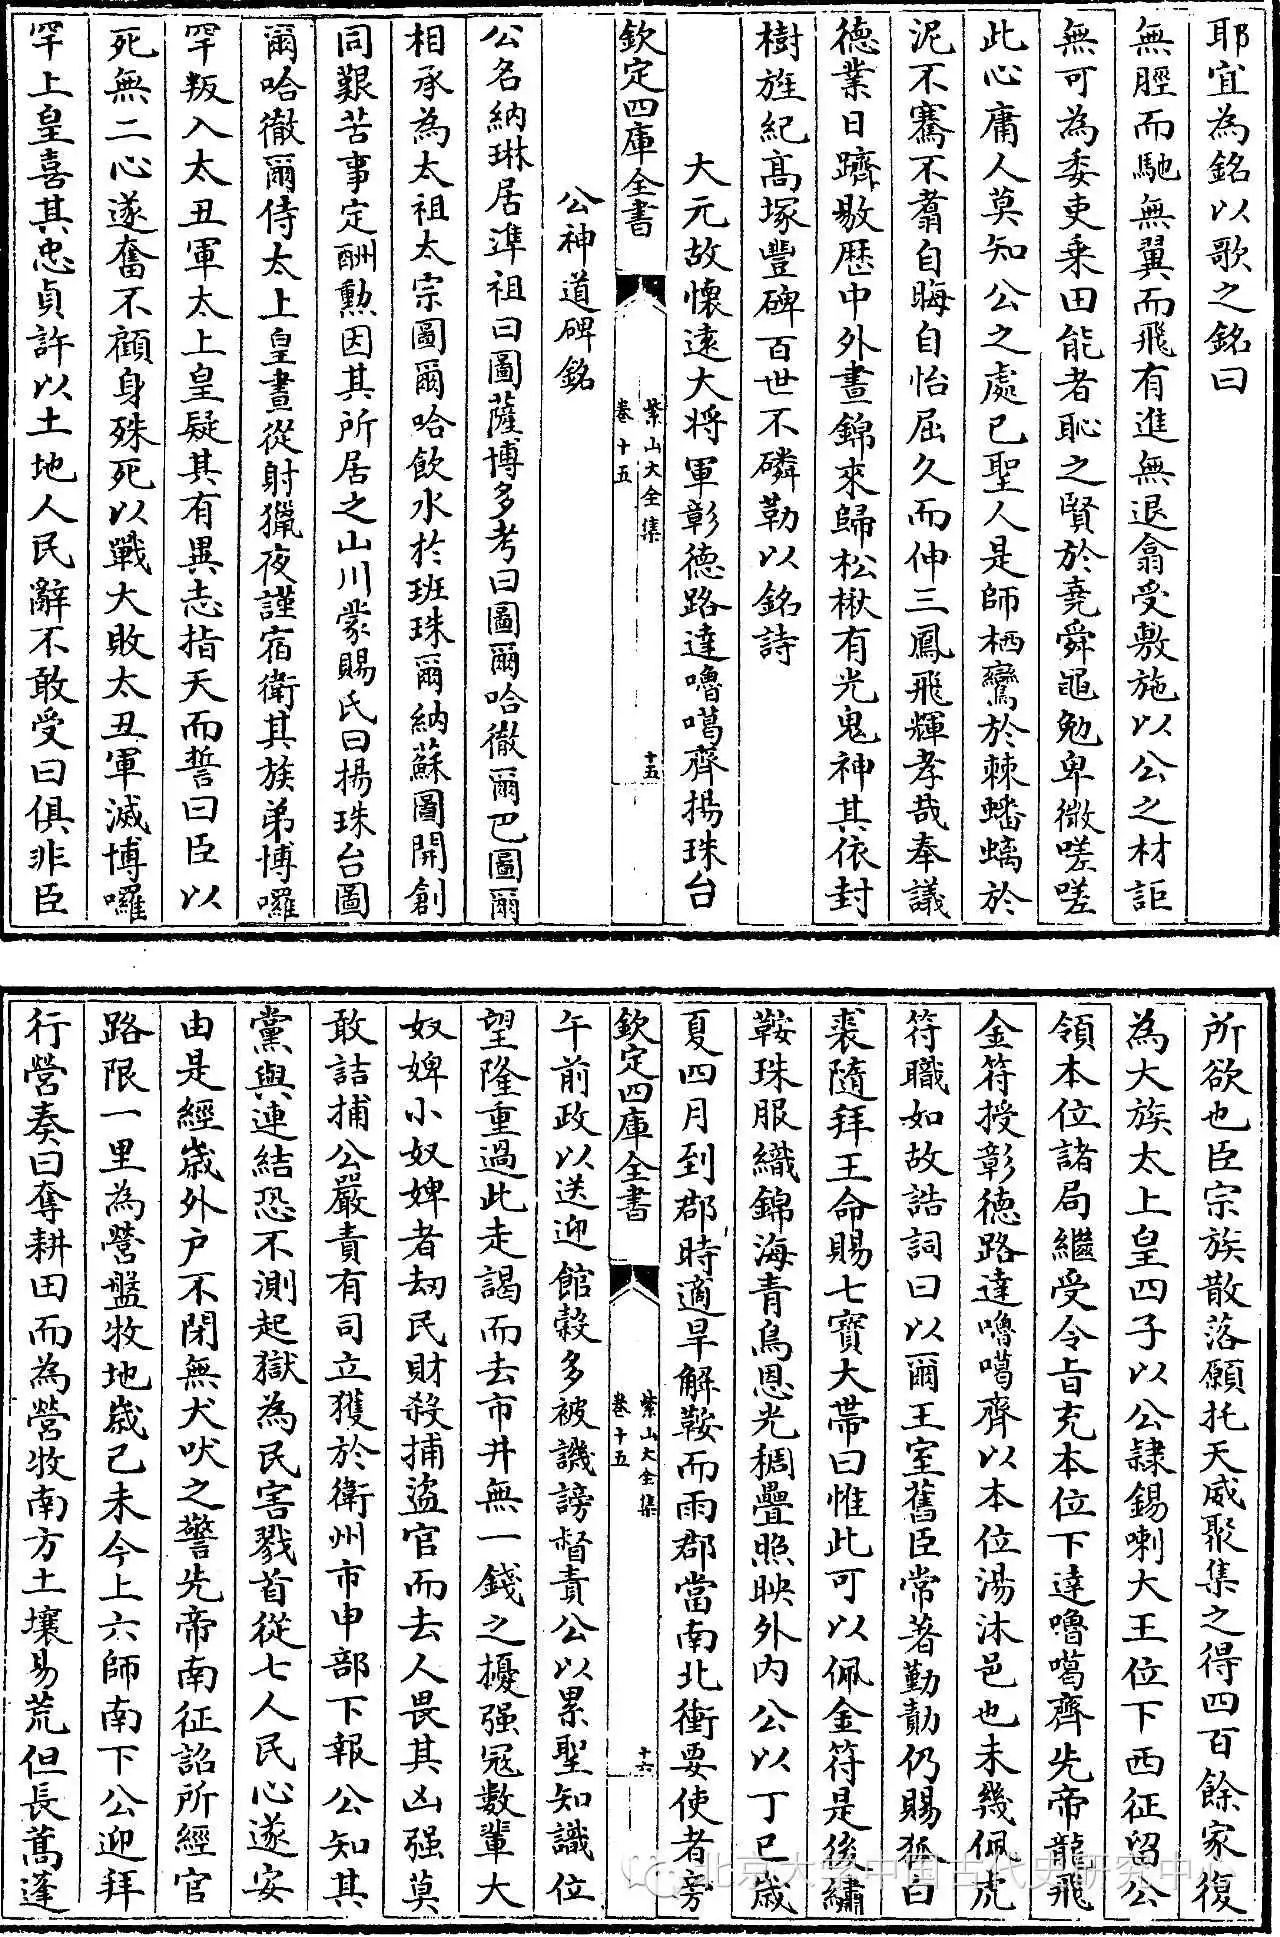 耶宜為銘以歌之銘曰
無脛而馳無翼而飛有進無退翕受敷施以公之材詎
無可為委吏乗田能者恥之賢於堯舜黽勉卑微嗟嗟
此心庸人莫知公之處已聖人是師栖鸞於棘蟠螭於
泥不騫不翥自晦自怡屈久而伸三鳳飛輝孝哉奉議
德業日躋敭歴中外晝錦來歸松楸有光鬼神其依封
樹旌紀高塚豐碑百世不磷勒以銘詩
大元故懐逺大将軍彰德路達嚕噶齊揚珠台
欽定四庫全書
紫山大全集
卷十五
十五
公神道碑銘
公名納琳居準祖曰圖薩博多考曰圖爾哈徹爾巴圖爾
相承為太祖太宗圖爾哈飲水於班珠爾納蘇圖開創
同艱苦事定酬勲因其所居之山川蒙賜氏曰揚珠台圖
爾哈徹爾侍太上皇晝從射獵夜謹宿衛其族弟博囉
罕叛入太丑軍太上皇疑其有異志指天而誓曰臣以
死無二心遂奮不顧身殊死以戰大敗太丑軍滅博囉
罕上皇喜其忠貞許以土地人民辭不敢受曰俱非臣
所欲也臣宗族散落願托天威聚集之得四百餘家復
為大族太上皇四子以公隷錫喇大王位下西征留公
領本位諸局繼受令㫖充本位下達嚕噶齊先帝龍飛
金符授彰德路達嚕噶齊以本位湯沐邑也未幾佩虎
符職如故誥詞曰以爾王室舊臣常著勤勣仍賜狐白
裘隨拜王命賜七寶大帶曰惟此可以佩金符是後繡
鞍珠服織錦海青鳥恩光稠疊照映外内公以丁已歳
夏四月到郡時適旱解鞍而雨郡當南北衝要使者旁
欽定四庫全書
紫山大全集
卷十五
十六
午前政以送迎館穀多被譏謗督責公以累聖知識位
望隆重過此走謁而去市井無一錢之擾强冦數輩大
奴婢小奴婢者刼民財殺捕盜官而去人畏其凶强莫
敢詰捕公嚴責有司立獲於衛州市申部下報公知其
黨與連結恐不測起獄為民害戮首從七人民心遂安
由是經歳外户不閉無犬吠之警先帝南征詔所經官
路限一里為營盤牧地歳己未今上六師南下公迎拜
行營奏曰奪耕田而為營牧南方土壤易荒但長蒿蓬
北京大学中国古代史研究中心